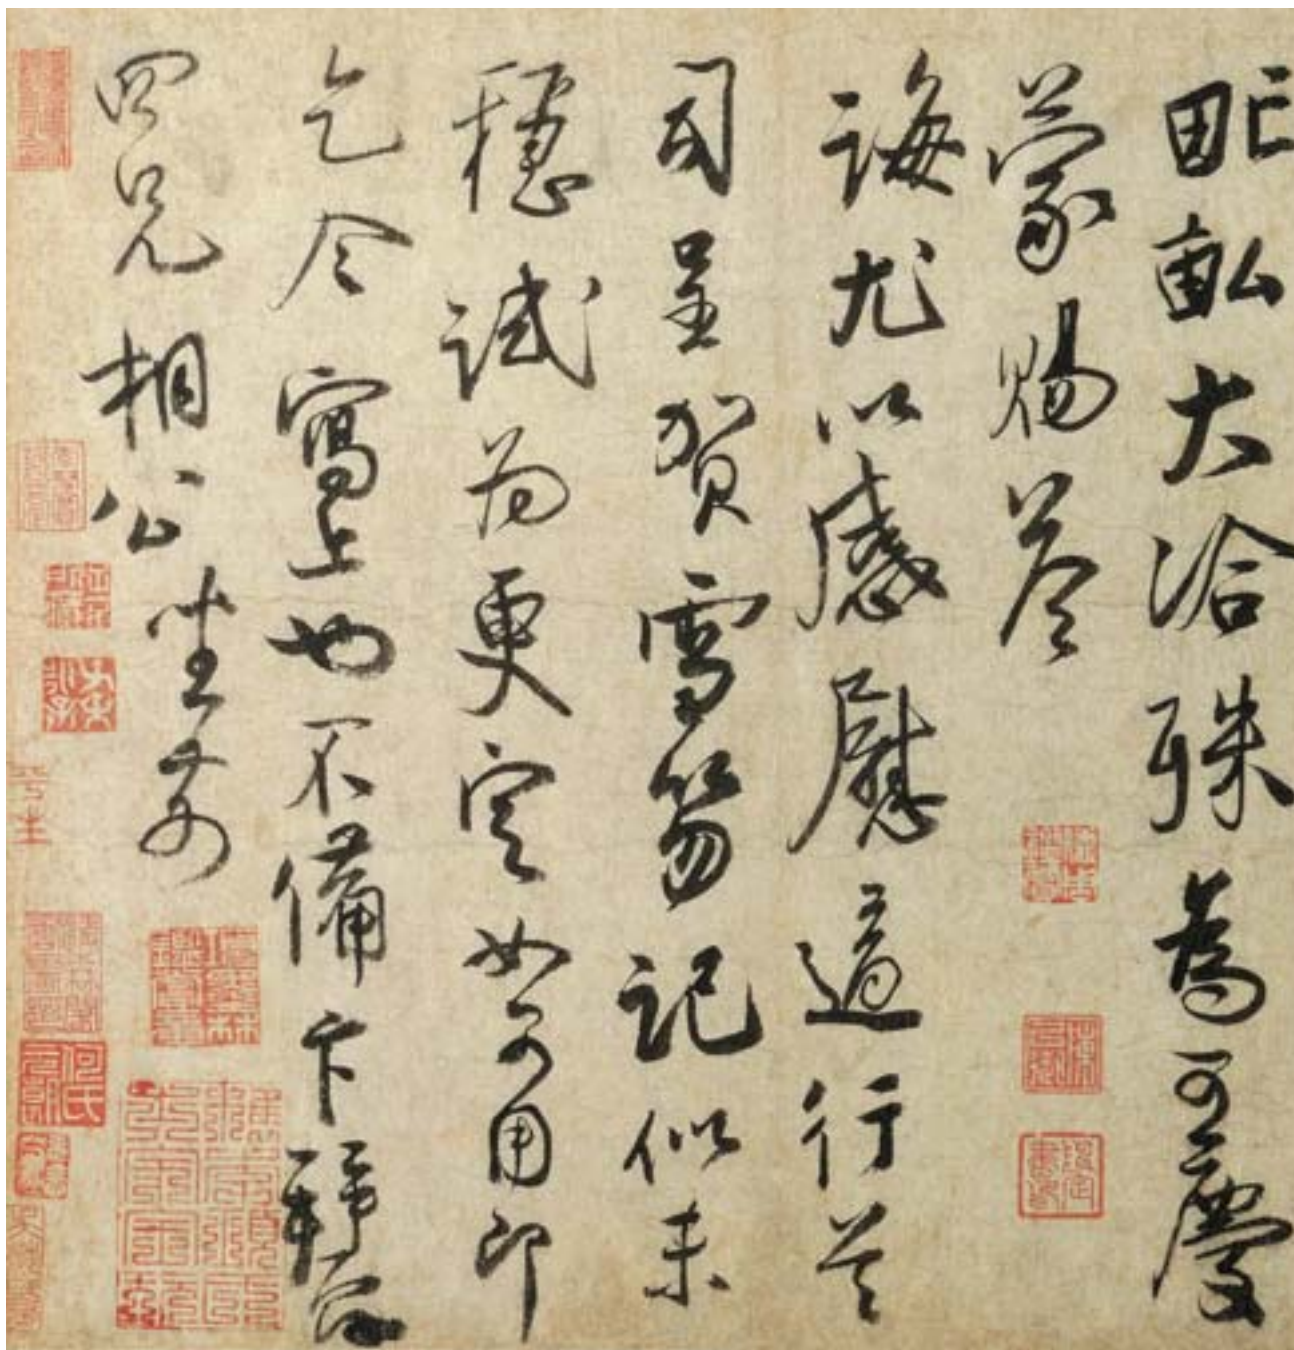 甿畝大洽殊為可慶
蒙賜荅
誨尤以感慰適行首
司呈賀雪笏記似未
穩試為更定如可用即
乞令寫上也不備卞拜覆
四兄相公坐前